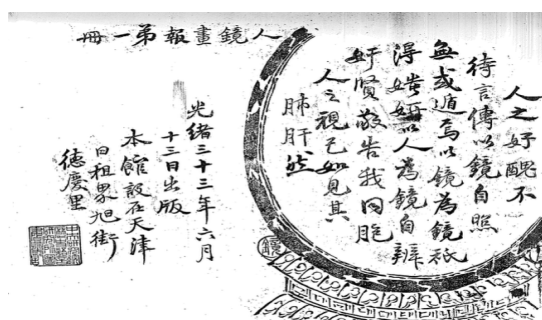 人鏡畫報弟一冊
人之好醜不
待言傳以鏡自照
無或遁焉以鏡為鏡祗
得媸妍以人為鏡自辨
奸賢敬告我同胞
人之視己如見其
肺肝然
光緒三十三年六月
十三日出版
本館設在天津
日租界旭街
德慶里